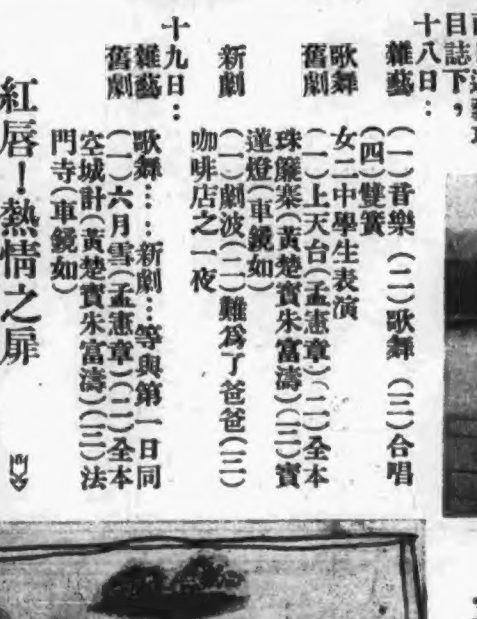 目誌下，
十八日：
雜藝　（一）音樂　（二）歌舞　（三）合唱
（四）雙簧
歌舞　女二中學生表演
舊劇　（一）上天台（孟憲章）（二）全本
珠簾寨（黃楚寶朱富濤）（三）寶
蓮燈（車鏡如）
新劇　（一）劇波（二）難爲了爸爸（三）
咖啡店之一夜
十九日：
雜藝　歌舞：：新劇：：等與第一日同
舊劇　（一）六月雪（孟憲章）（二）全本
空城計（黃楚寶朱富濤）（三）法
門寺（車鏡如）
紅唇！熱情之扉